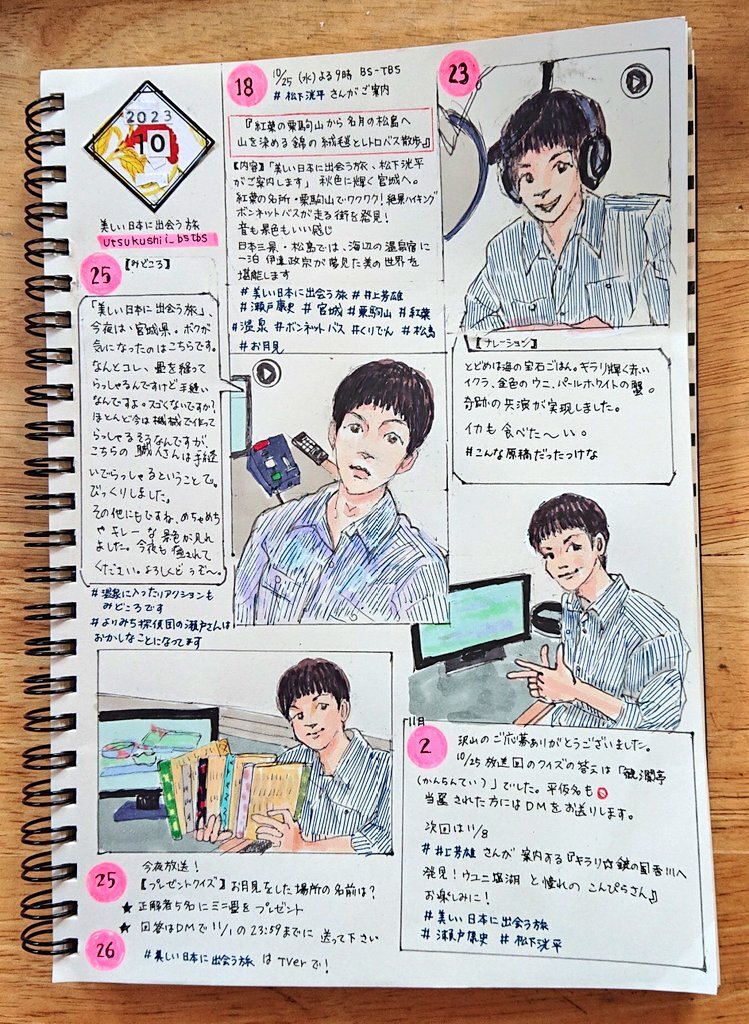 2023
10
美しい日本に出会う旅
utsukushii_bstbs
25
【みどころ】
「美しい日本に出会う旅」、
今夜は、宮城県。ボクが
気になったのはこちらです。
なんとコレ、畳を縫って
らっしゃるんですけど手縫い
なんですよ。スゴくないですか?
ほとんど今は機械で作って
らっしゃるそうなんですが、
こちらの職人さんは手縫
いでらっしゃるということで。
びっくりしました。
その他にもですね、めちゃめち
ゃキレーな景色が見れ
ました。今夜も癒されて
ください。よろしくどうぞ〜。
#温泉に入ったリアクションも
みどころです
#よりみち探偵団の瀬戸さんは
おかしなことになってます
18
10/25(水)よる9時 BS-TBS
#松下洸平さんがご案内
『紅葉の栗駒山から名月の松島へ
山を染める錦の絨毯とレトロバス散歩』
【内容】「美しい日本に出会う旅、松下洸平
がご案内します」秋色に輝く宮城へ。
紅葉の名所・栗駒山でワクワク!絶景ハイキング
ボンネットバスが走る街を発見!
音も景色もいい感じ
日本三景・松島では、海辺の温泉宿に
一泊 伊達政宗が夢見た美の世界を
堪能します
#美しい日本に出会う旅 #井上芳雄
#瀬戸康史 #宮城 #栗駒山 #紅葉
#温泉 #ボンネットバス #くりでん #松島
#お月見
23
【ナレーション】
とどめは海の宝石ごはん。キラリ輝く赤い
イクラ、金色のウニ、パールホワイトの蟹。
奇跡の共演が実現しました。
イカも食べた〜い。
#こんな原稿だったっけな
25
今夜放送!
【プレゼントクイズ】お月見をした場所の名前は?
★正解者5名にミニ畳をプレゼント
★回答はDMで11/1の23:59までに送って下さい
26
#美しい日本に出会う旅 はTVerで!
11月
2
沢山のご応募ありがとうございました。
10/25放送回のクイズの答えは「観瀾亭
(かんらんてい)」でした。平仮名も◯
当選された方にはDMをお送りします。
次回は11/8
#井上芳雄さんが案内する『キラリ☆鏡の国香川へ
発見!ウユニ塩湖と憧れのこんぴらさん』
お楽しみに!
#美しい日本に出会う旅
#瀬戸康史 #松下洸平